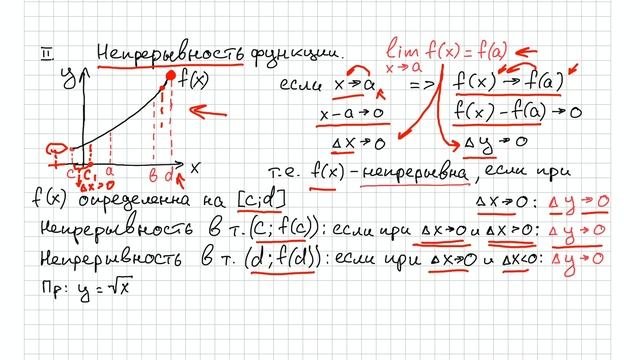 II Непрерывность функции. lim f(x) = f(a)
x→a
y f(x) если x→a => f(x) → f(a)
x-a→0 f(x) - f(a) → 0
Δx→0 Δy→0
c c₁ a в d x
Δx>0
т.е. f(x) - непрерывна, если при
f(x) определенна на [c;d] Δx→0: Δy→0
Непрерывность в т. (c; f(c)): если при Δx→0 и Δx>0: Δy→0
Непрерывность в т. (d; f(d)): если при Δx→0 и Δx<0: Δy→0
Пр: y = √x